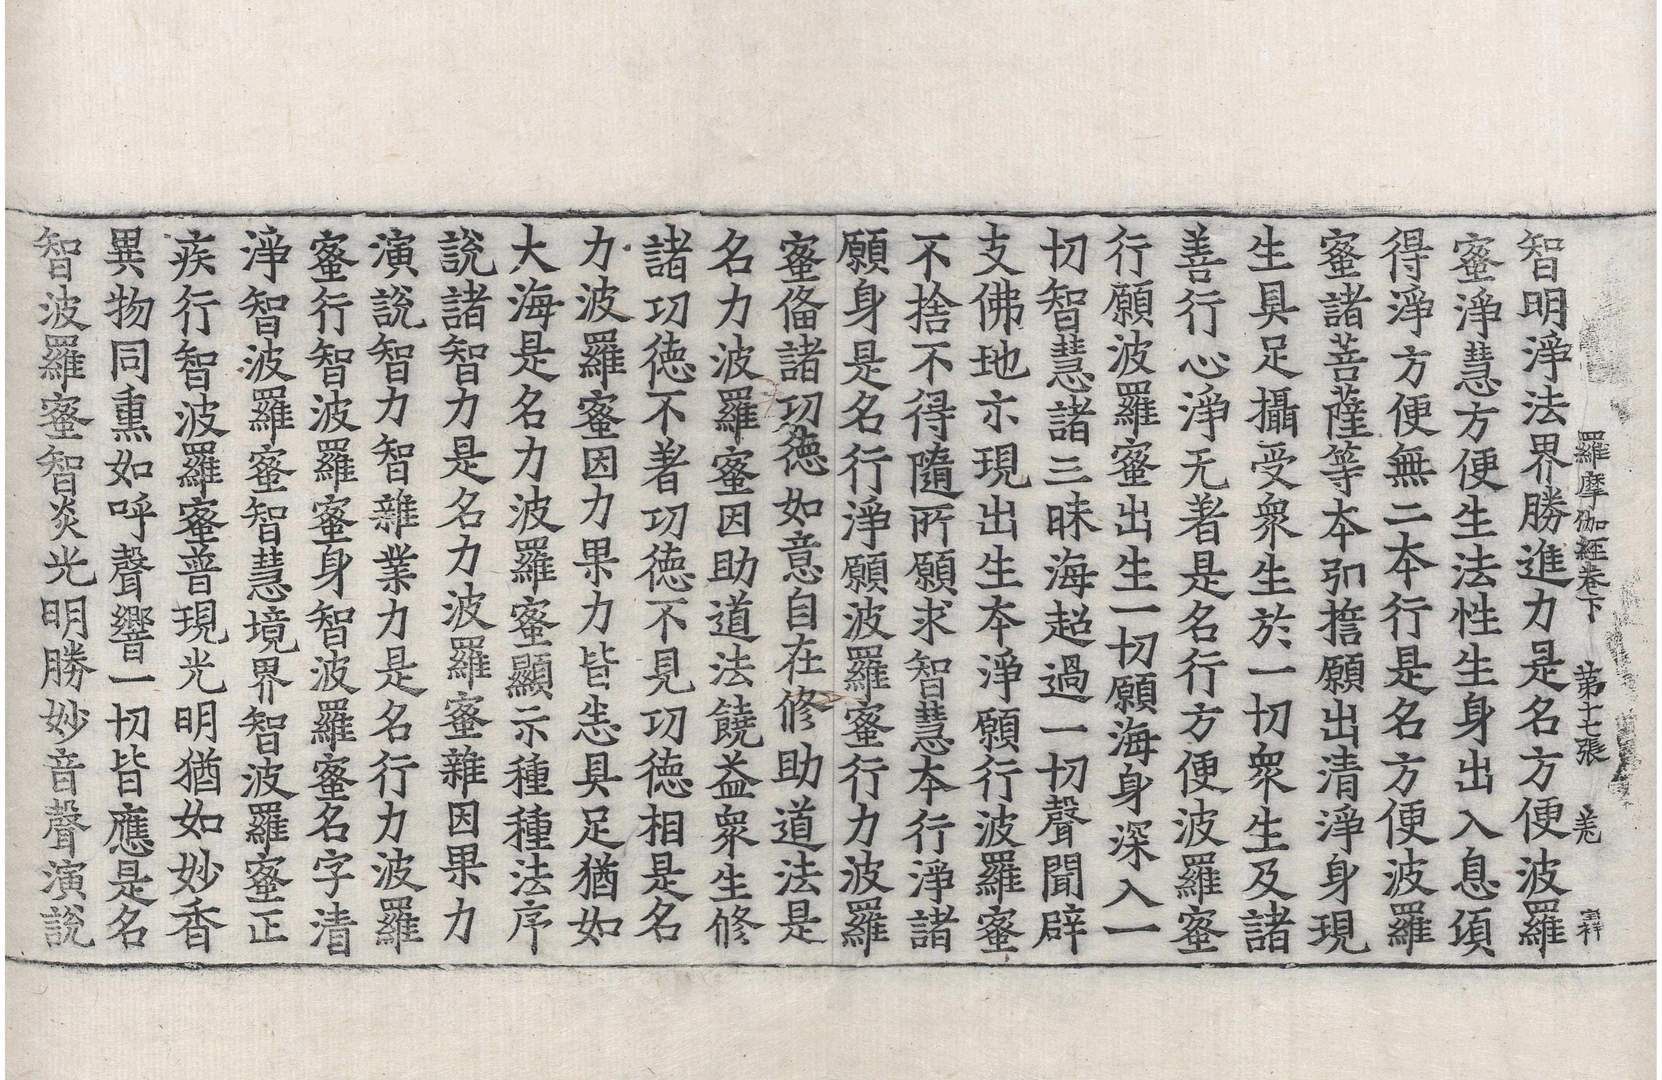 羅摩伽經卷下　第十七張　羌　宝祥
智明淨法界勝進力是名方便波羅
蜜淨慧方便生法性生身出入息須
得淨方便無二本行是名方便波羅
蜜諸菩薩等本弘誓願出清淨身現
生具足攝受衆生於一切衆生及諸
善行心淨无著是名行方便波羅蜜
行願波羅蜜出生一切願海身深入一
切智慧諸三昧海超過一切聲聞辟
支佛地亦現出生本淨願行波羅蜜
不捨不得隨所願求智慧本行淨諸
願身是名行淨願波羅蜜行力波羅
蜜俻諸功德如意自在修助道法是
名力波羅蜜因助道法饒益衆生修
諸功德不著功德不見功德相是名
力波羅蜜因力果力皆悉具足猶如
大海是名力波羅蜜顯示種種法序
說諸智力是名力波羅蜜雜因果力
演說智力智雜業力是名行力波羅
蜜行智波羅蜜身智波羅蜜名字清
淨智波羅蜜智慧境界智波羅蜜正
疾行智波羅蜜普現光明猶如妙香
異物同熏如呼聲響一切皆應是名
智波羅蜜智炎光明勝妙音聲演說